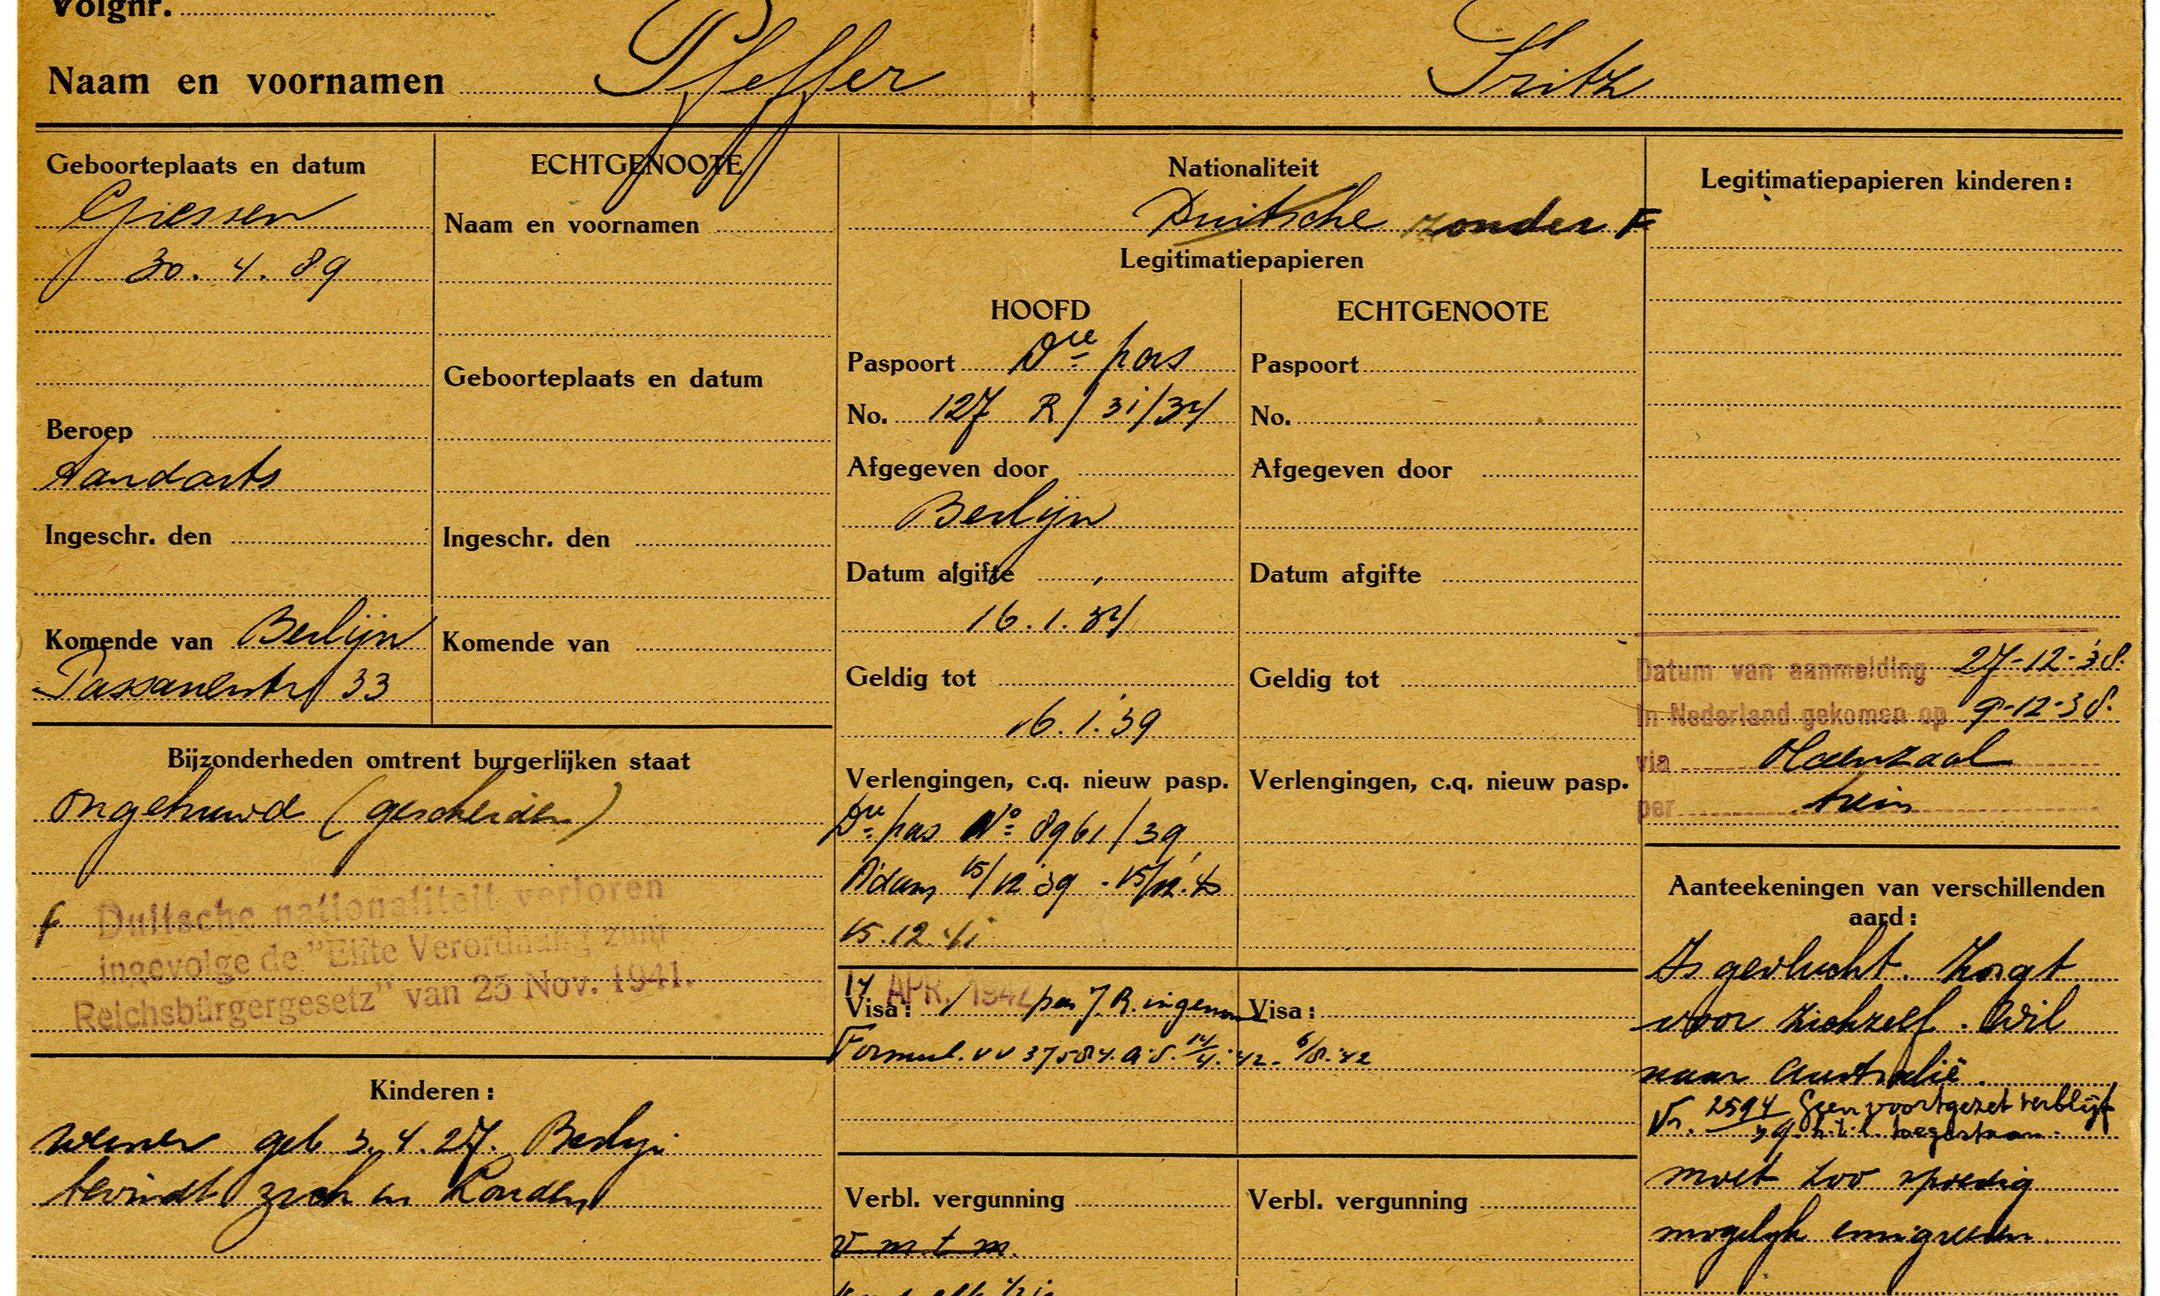 Volgnr.
Naam en voornamen Pfeffer Fritz
Geboorteplaats en datum
Giessen
30.4.89
Beroep
tandarts
Ingeschr. den
Komende van Berlijn
Passauerstr 33
ECHTGENOOTE
Naam en voornamen
Geboorteplaats en datum
Ingeschr. den
Komende van
Bijzonderheden omtrent burgerlijken staat
ongehuwd (gescheiden)
Duitsche nationaliteit verloren
ingevolge de "Elfte Verordnung zum
Reichsbürgergesetz" van 25 Nov. 1941.
Kinderen:
Werner geb 3.4.27. Berlijn
bevindt zich in Londen
Nationaliteit
Duitsche zonder
Legitimatiepapieren
HOOFD
Paspoort Dre pas
No. 127 R/31/34
Afgegeven door
Berlijn
Datum afgifte
16.1.34
Geldig tot
16.1.39
Verlengingen, c.q. nieuw pasp.
Dre pas No 8961/39
A'dam 15/12 '39 - 15/12.'40
15.12.41
14 APR. 1942
Visa: pas J R. ingenom
Formul. 14/4.'42 - 6/8.'42
Verbl. vergunning
v m t m.
ECHTGENOOTE
Paspoort
No.
Afgegeven door
Datum afgifte
Geldig tot
Verlengingen, c.q. nieuw pasp.
Visa:
Verbl. vergunning
Legitimatiepapieren kinderen:
Datum van aanmelding 27-12-38.
In Nederland gekomen op 9-12-38.
via Oldenzaal
per trein
Aanteekeningen van verschillenden
aard:
Is gevlucht. Zorgt
voor zichzelf. Wil
naar Australië.
Vr. 2594/39 Geen voortgezet verblijf
h.t.l. toegestaan.
moet zoo spoedig
mogelijk emigreeren.